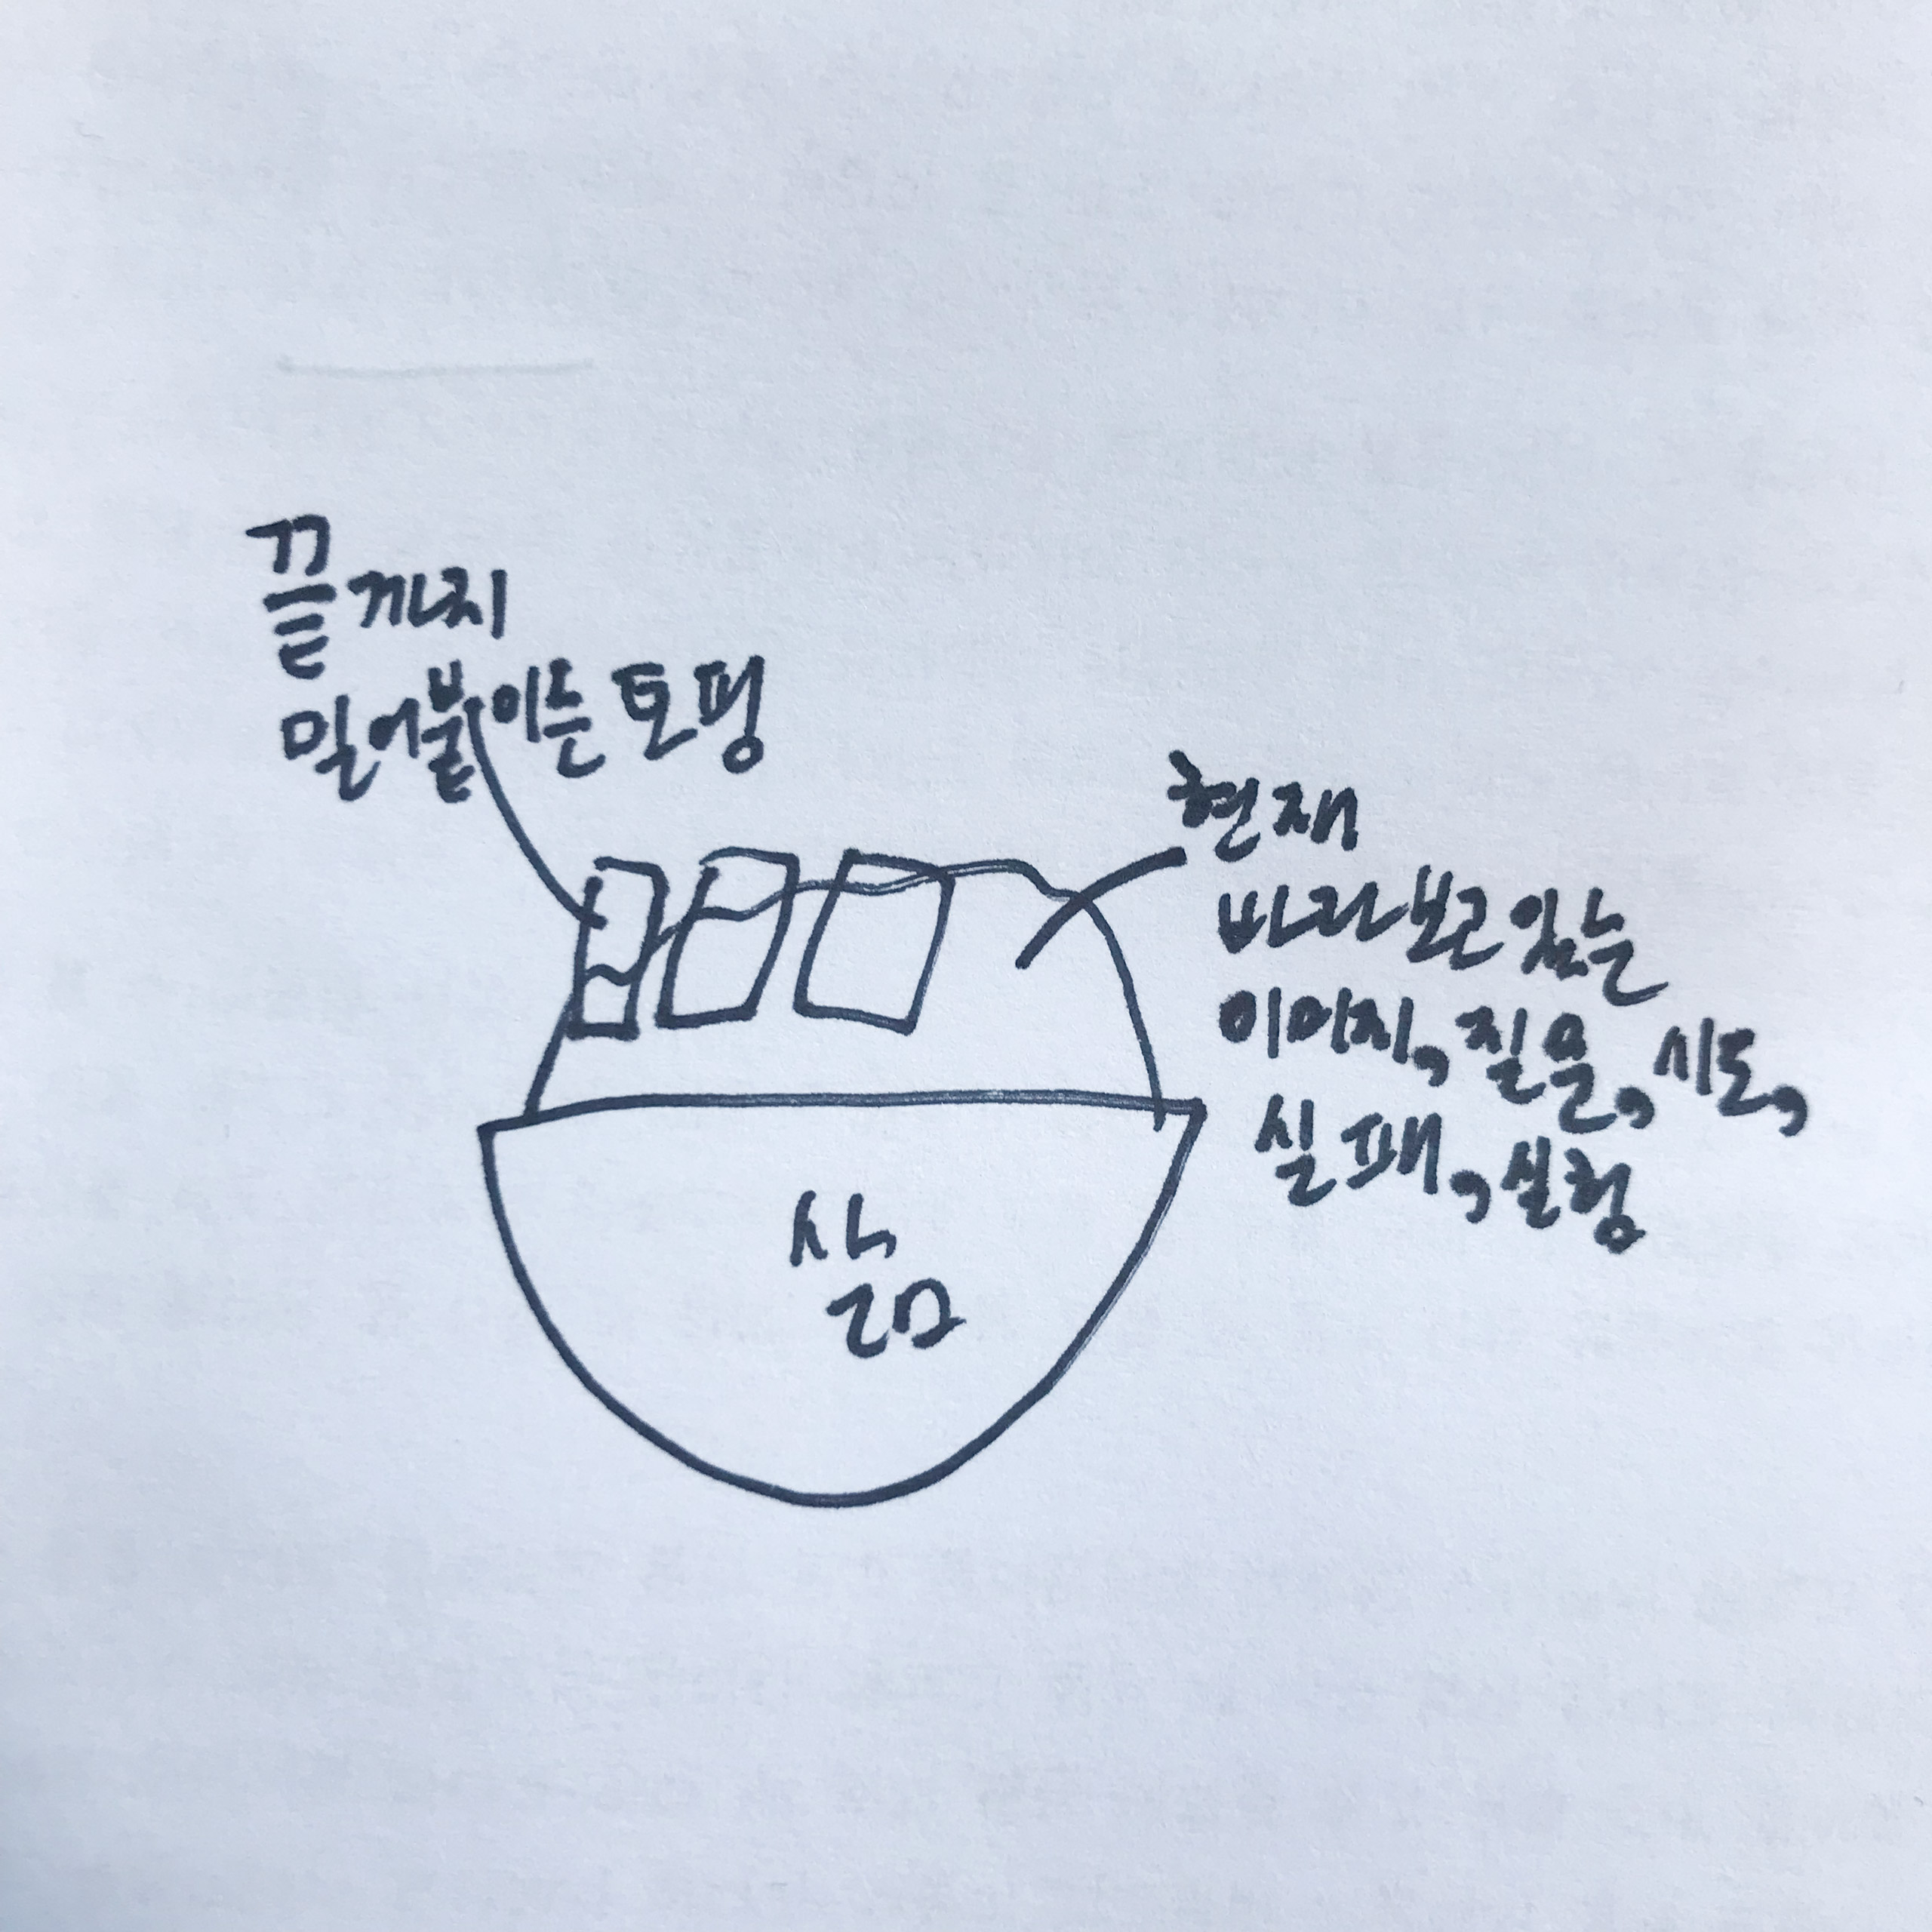 끝까지
밀어붙이는 토핑
현재
바라보고 있는
이미지, 질문, 시도,
실패, 실험
삶